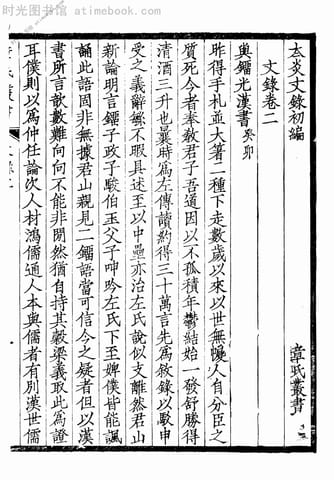 时光图书馆 - atimebook.com
太炎文錄初編
章氏叢書
文錄卷二
與鐂光漢書 癸卯
昨得手札並大著二種下走數歲以來以世無人自分臣之
質死今者奉教君子吾道因以不孤積年鬱結始一發舒勝得
清酒三升也曩時為左傳讀約得三十萬言先為敘錄以駁申
受之義辭緐不暇具述至以中壘亦治左氏說似支離然君山
新論明言鐂子政子駿伯玉父子呻吟左氏下至婢僕皆能諷
誦此語固非無據君山親見二鐂語當可信今之疑者但以漢
書所言歆數難向向不能非閒然猶自持其穀梁義取此為證
耳僕則以為仲任論次人材鴻儒通人本與儒者有別漢世儒